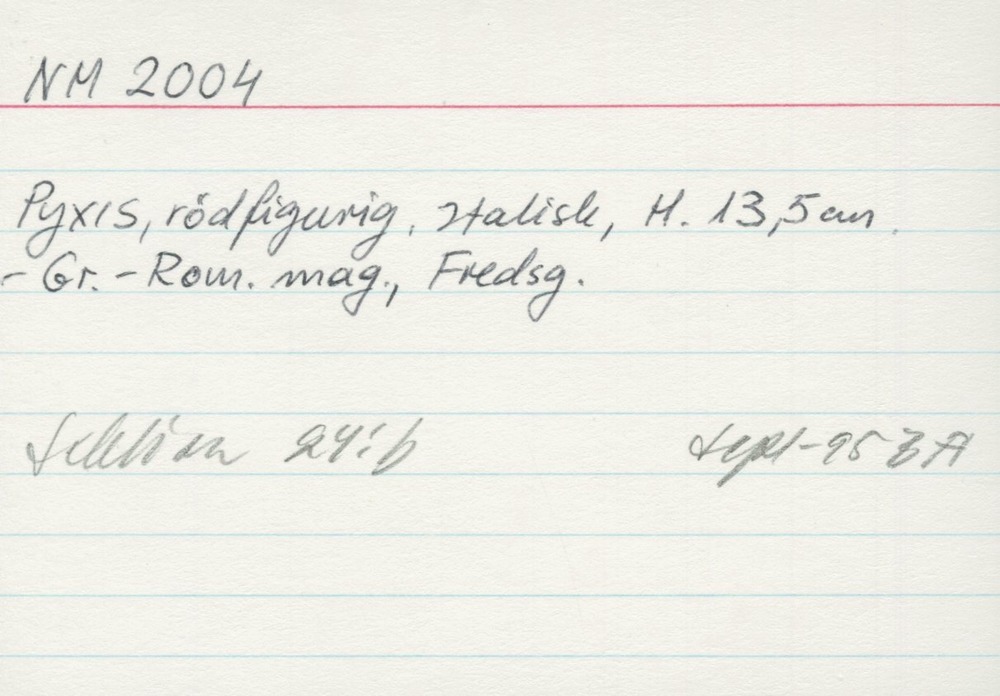 NM 2004
Pyxis, rödfigurig, Italisk, H. 13,5 cm.
- Gr. - Rom. mag., Fredsg.
Sektion 24:b sept-95 BA